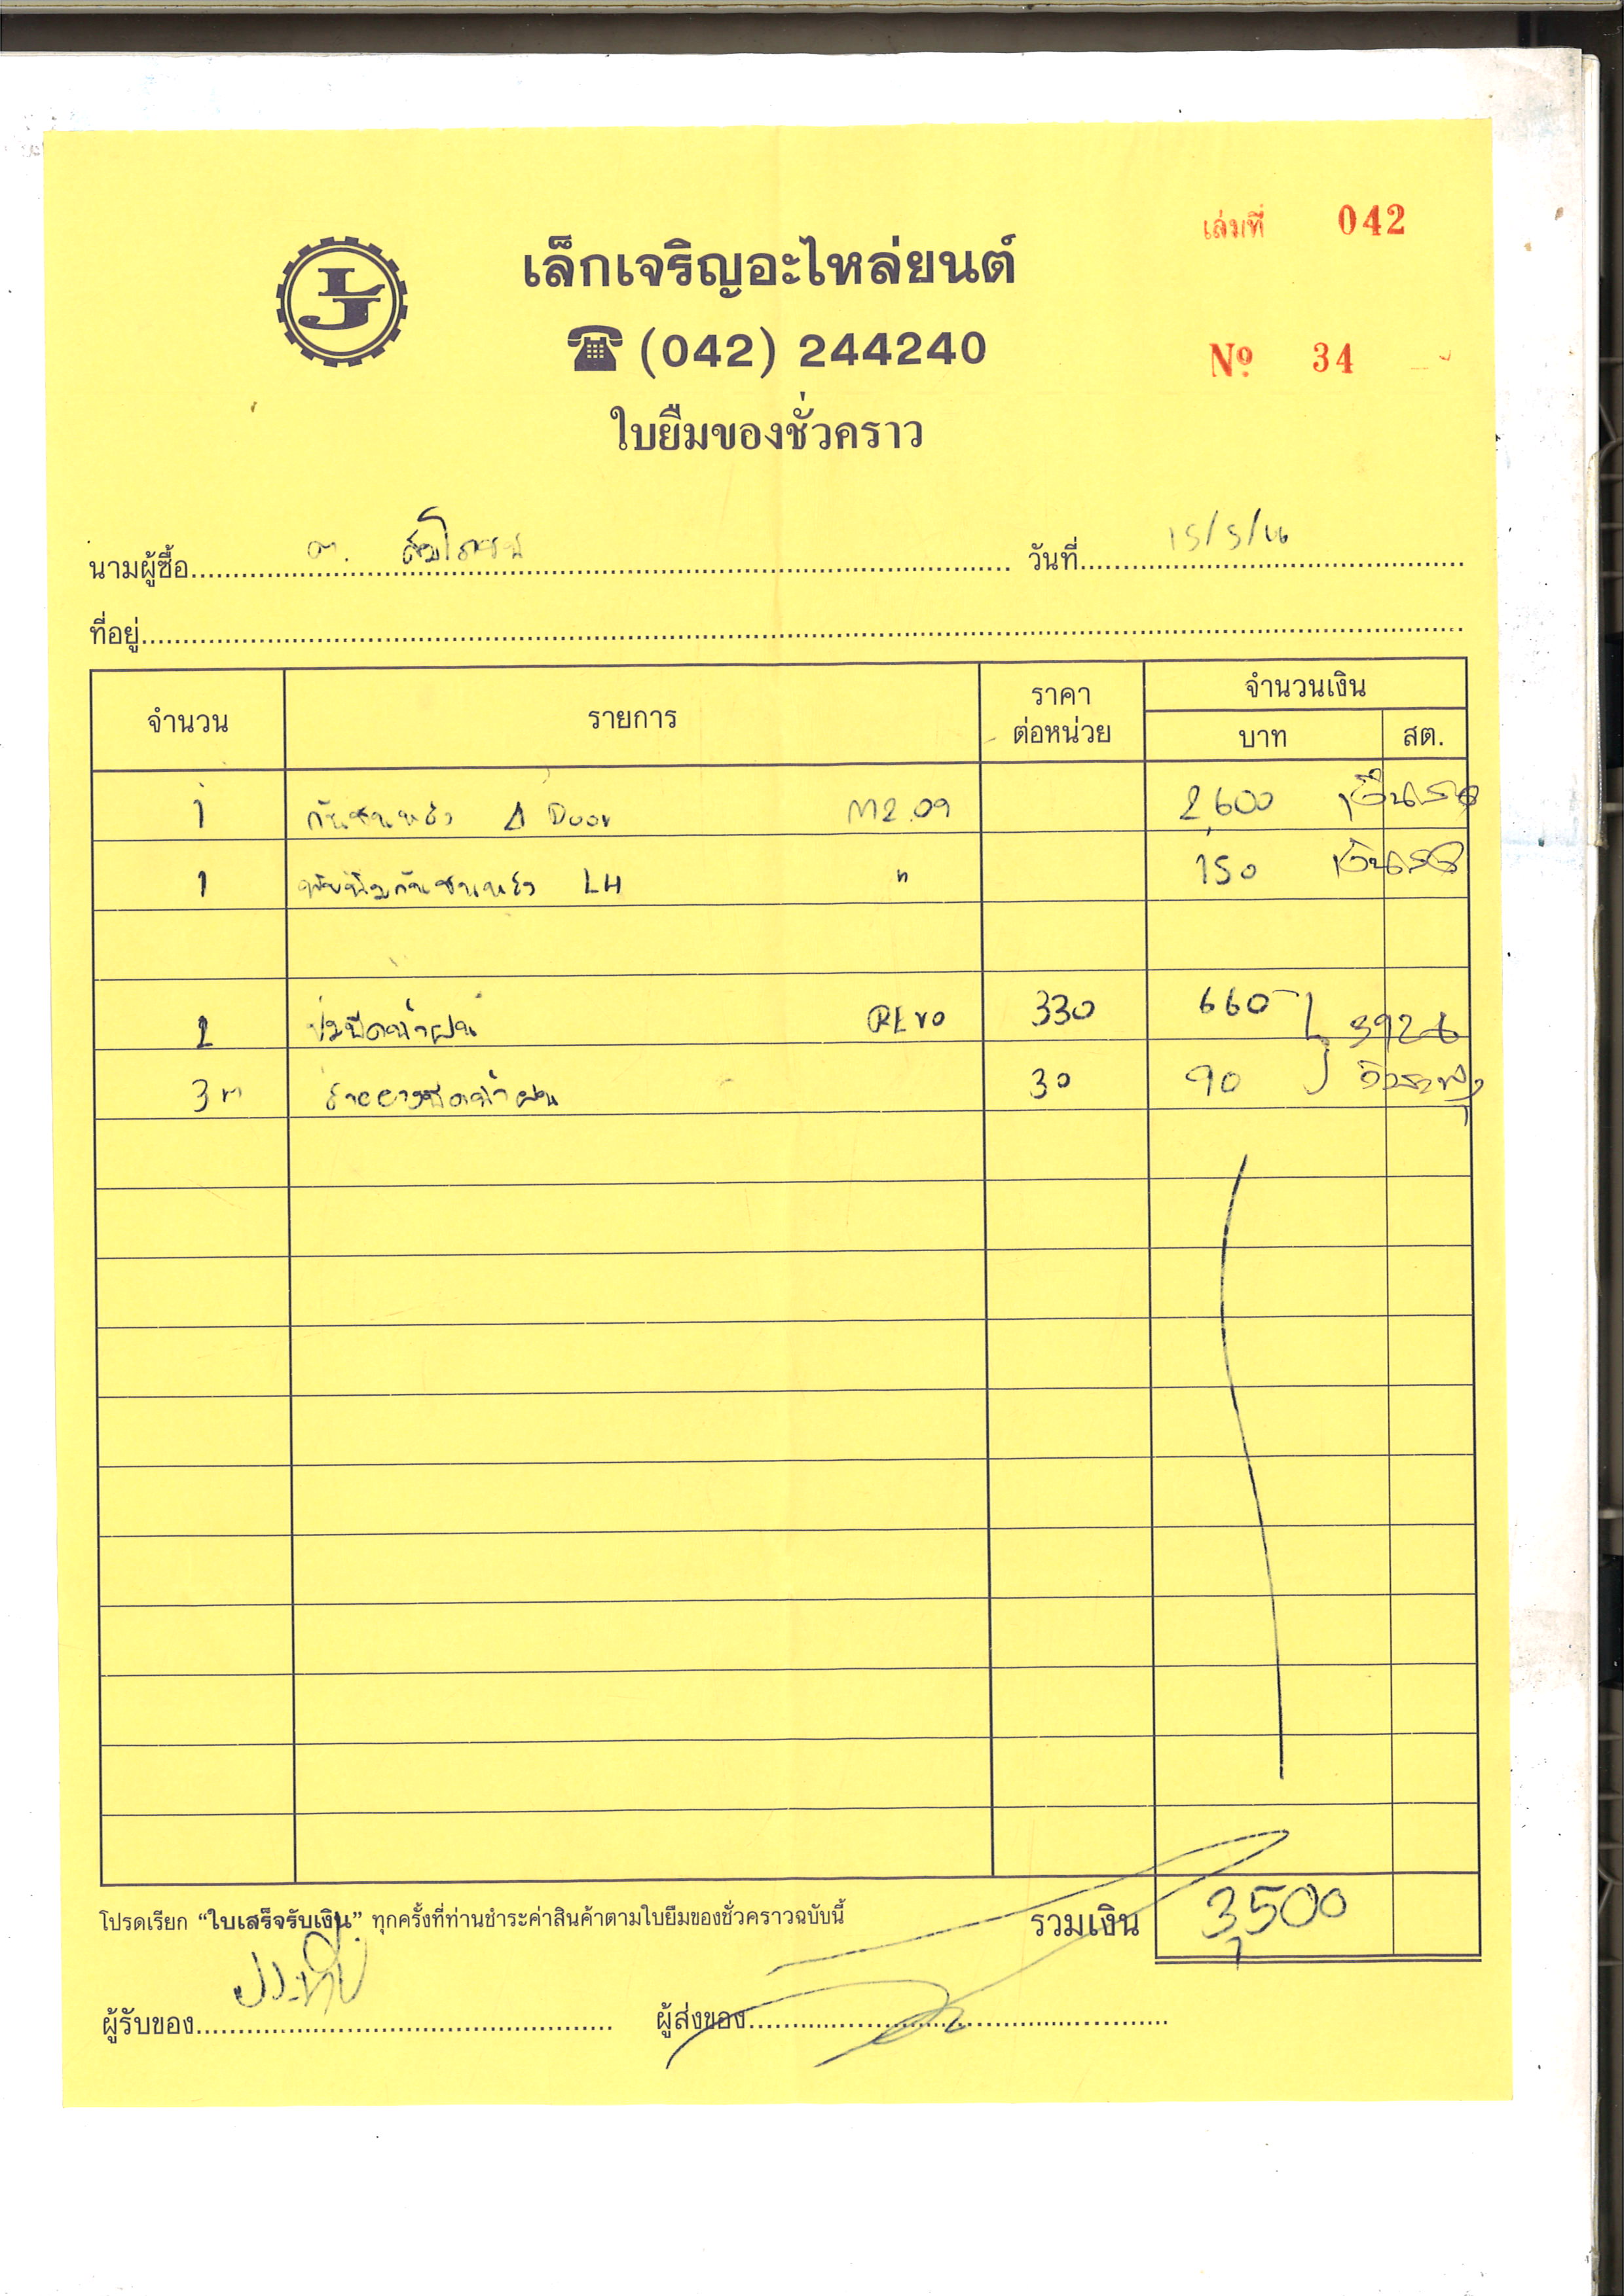 เล่มที่ 042
LJ
เล็กเจริญอะไหล่ยนต์
☎ (042) 244240
Nº 34
ใบยืมของชั่วคราว
นามผู้ซื้อ วันที่ 15/5/66
ที่อยู่
จำนวน รายการ ราคาต่อหน่วย จำนวนเงิน
บาท สต.
1 กันชนหลัง 4 Door M2.09 2,600
1 กันชนหลัง LH " 150
2 ปั๊มฉีดน้ำฝน REVO 330 660
3 m สายยางฉีดน้ำฝน 30 90
โปรดเรียก “ใบเสร็จรับเงิน” ทุกครั้งที่ท่านชำระค่าสินค้าตามใบยืมของชั่วคราวฉบับนี้ รวมเงิน 3,500
ผู้รับของ ประทีป ผู้ส่งของ